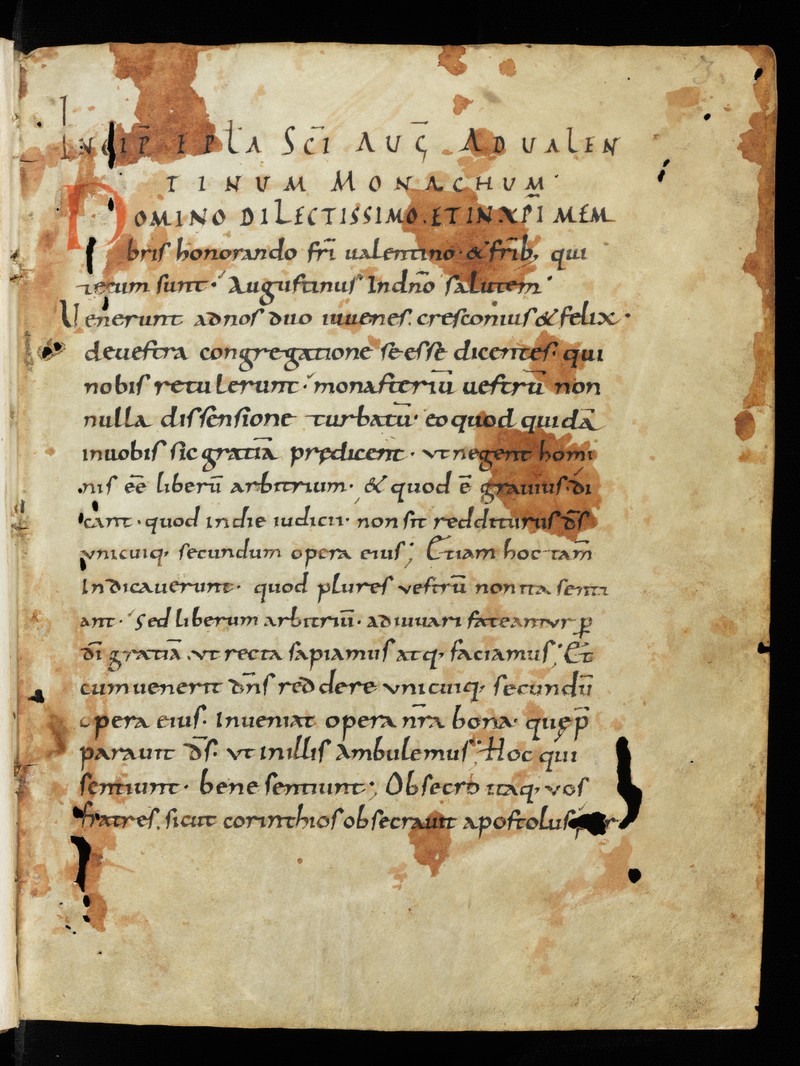 3
INCIP EPLA SCĪ AUḠ ADUALEN
TINUM MONACHUM·
DOMINO DILECTISSIMO. ET IN XP̄I MEM
bris honorando frī ualentino· & frīb; qui
tecum sunt· Augustinus In dn̄o salutem·
Uenerunt ad nos duo iuuenes. cresconius & felix·
de uestra congregatione se esse dicentes· qui
nobis retulerunt· monasteriū uestrū non
nulla dissensione turbatū· eo quod quidā
in uobis sic gratiā prędicent· ut negent homi
nis eē liberū arbitrium· & quod ē grauius· di
cant· quod in die iudicii· non sit redditurus d̄s
unicuiq; secundum opera eius; Etiam hoc tam̄
Indicauerunt· quod plures uestrū non ita senti
ant· Sed liberum arbitriū· adiuuari fateantur ꝑ
dī gratiā. ut recta sapiamus atq; faciamus; Et
cum uenerit dn̄s reddere unicuiq; secundū
opera eius. Inueniat opera nr̄a bona· quę p̄
parauit d̄s. ut in illis Ambulemus; Hoc qui
sentiunt· bene sentiunt; Obsecro itaq; uos
fratres. sicut corinthios obsecrauit apostolus per